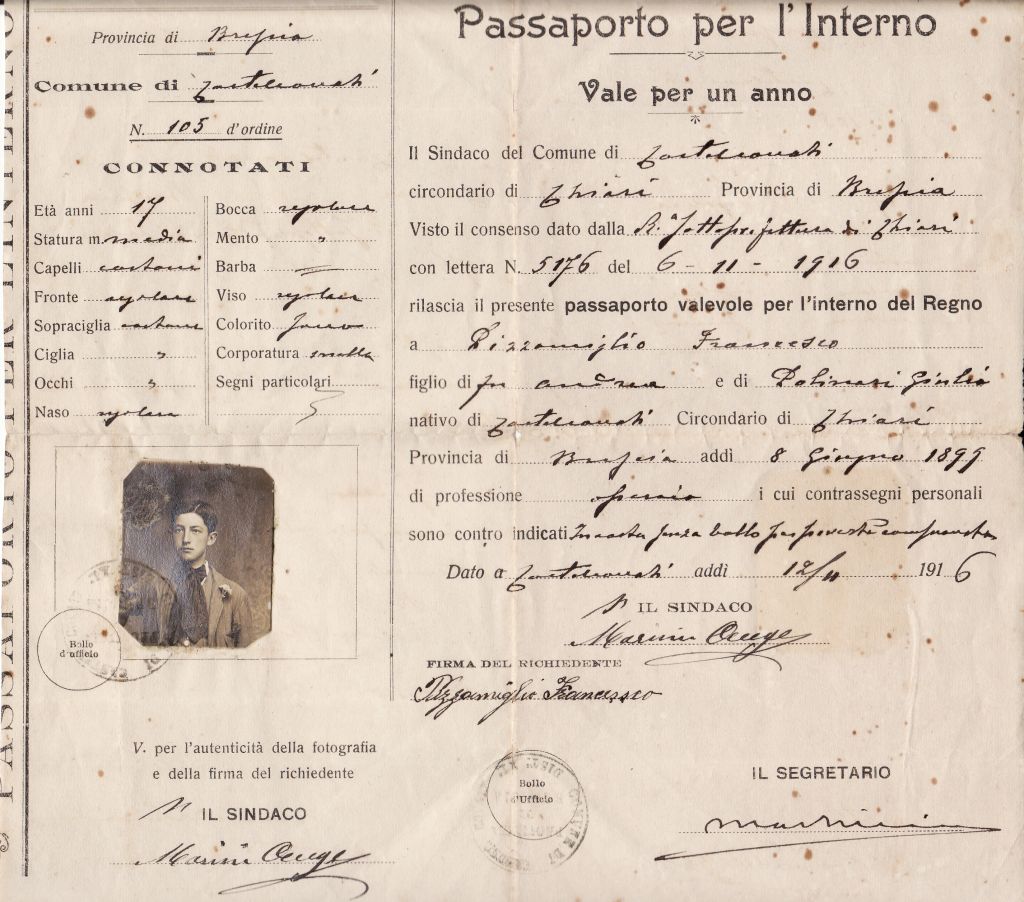 PASSAPORTO PER L'INTERNO
Provincia di Brescia
Comune di Castelcovati
N. 105 d'ordine
CONNOTATI
Età anni 17
Statura m. media
Capelli castani
Fronte regolare
Sopraciglia castane
Ciglia "
Occhi "
Naso regolare
Bocca regolare
Mento "
Barba =
Viso regolare
Colorito
Corporatura snella
Segni particolari
Bollo
d'ufficio
V. per l'autenticità della fotografia
e della firma del richiedente
IL SINDACO
Passaporto per l'Interno
Vale per un anno
Il Sindaco del Comune di Castelcovati
circondario di Chiari Provincia di Brescia
Visto il consenso dato dalla R. Sottoprefettura di Chiari
con lettera N. 5176 del 6 - 11 - 1916
rilascia il presente passaporto valevole per l'interno del Regno
a Pizzamiglio Francesco
figlio di fu Andrea e di
nativo di Castelcovati Circondario di Chiari
Provincia di Brescia addì 8 Giugno 1899
di professione operaio i cui contrassegni personali
sono contro indicati In carta senza bollo per povertà comprovata
Dato a Castelcovati addì 12/11 1916
IL SINDACO
FIRMA DEL RICHIEDENTE
Pizzamiglio Francesco
Bollo
d'Ufficio
IL SEGRETARIO